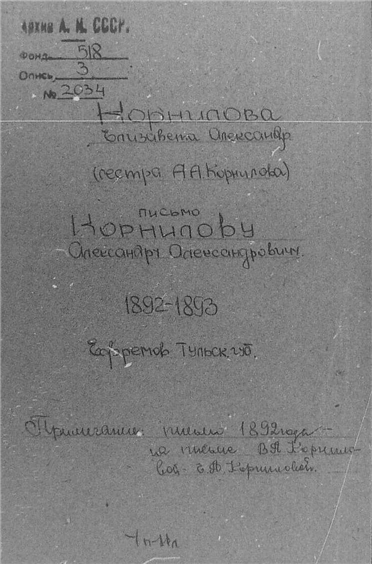 Архив А. Н. СССР.
Фонд 518
Опись 3
№ 2034
Корнилова
Елизавета Александр
(сестра А А Корнилова)
письмо
Корнилову
Александру Александровичу.
1892-1893
Ефремов Тульск. губ.
Примечание письмо 1892 года -
на письме В А Корнило-
вой. Е. А. Корниловой.